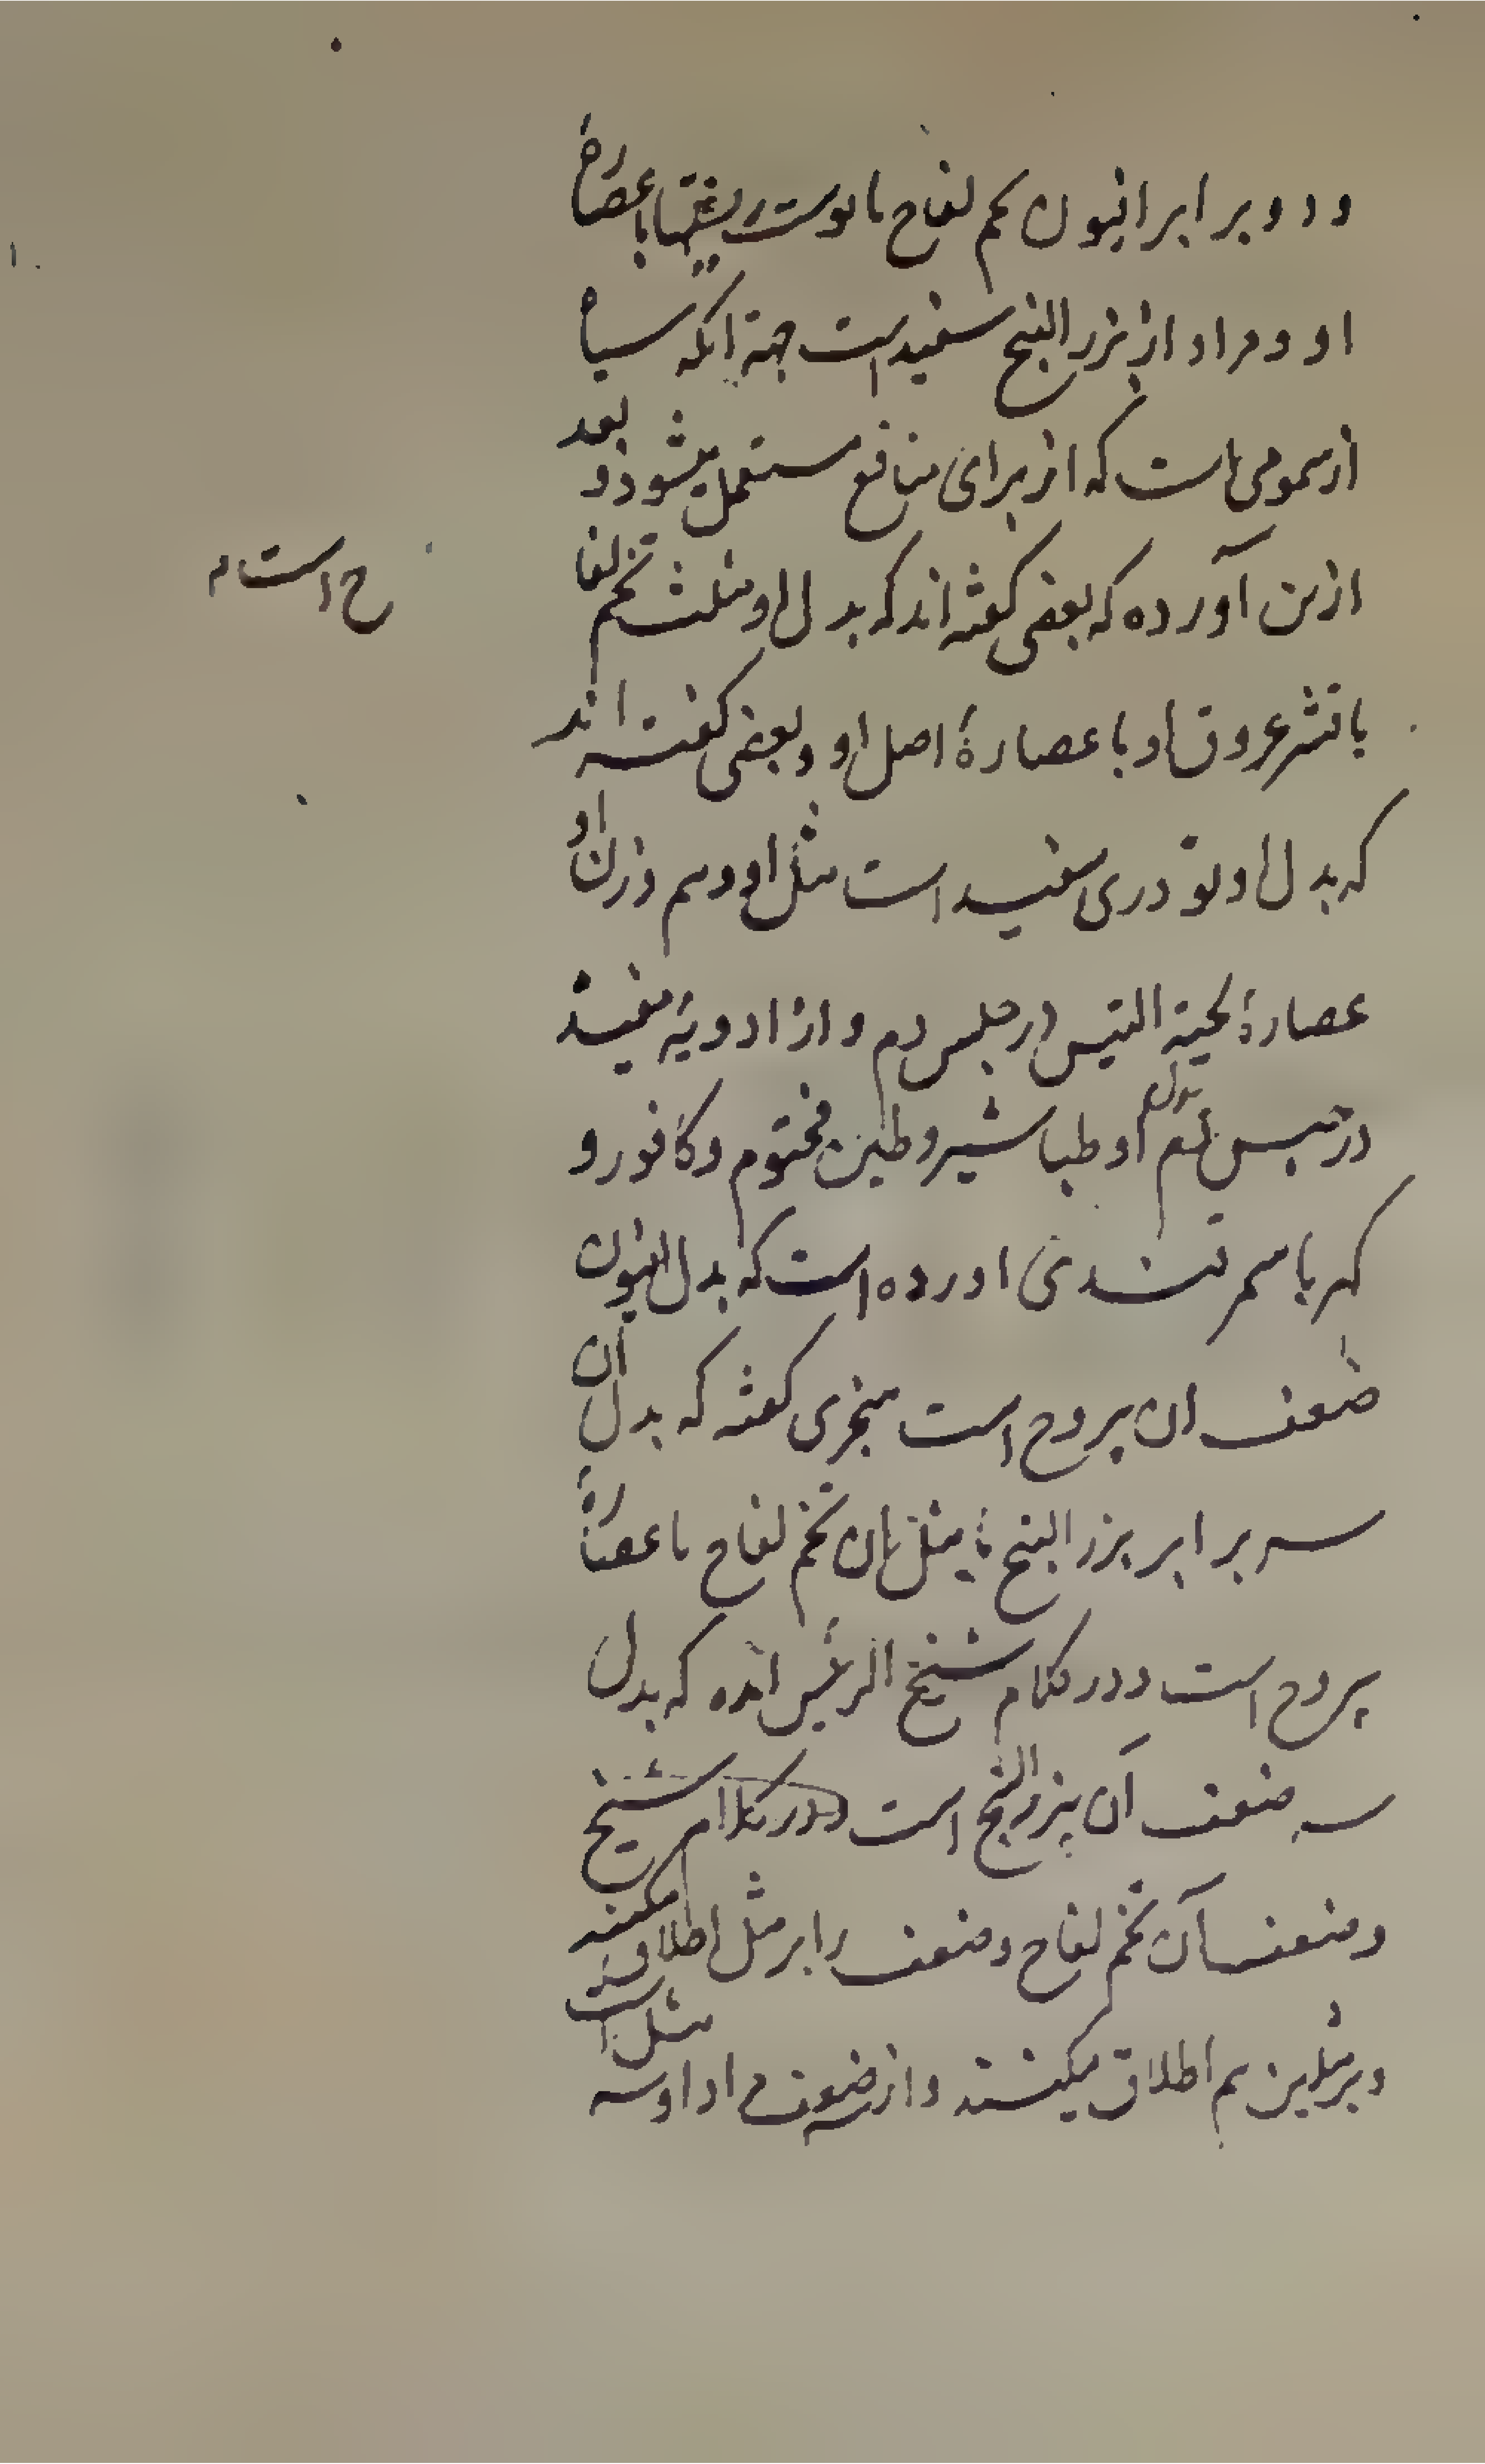 و دو برابر افیون تخم لفاح با پوست ریشها با عصارهٔ
او و مراد از بزر البنج سفید است جهة آنکه سیاه
از سمومی است که از برای منافع مستعمل میشود و بعد
ازین آورده که بعضی گفته‌اند که بدل او مثلث تخم لفا
ح است م
با قشر عروق او با عصارهٔ اصل او و بعضی گفته اند
که بدل او تودری سفید است مثل او و هم وزن او
عصارهٔ لحیة التیس در حبس دم و از ادویهٔ مفیده
در حبس دم بول او طباشیر و طین مختوم و کافور و
کهربا سمرقندی اورده است که بدل افیون
ضعف ان یبروح است سنجری گفته که بدل آن
سه برابر بزر البنج یا مثل ان تخم لفاح یا عصارهٔ
یبروح است و در کلام شیخ الرئیس آمده که بدل
سه ضعف آن بزر البنج است و در کلام شیخ
و ضعف آن تخم لفاح و ضعف را بر مثل اطلاق میکنند
و بر مثلین هم اطلاق میکنند و از ضعف مراد او سه مثل است